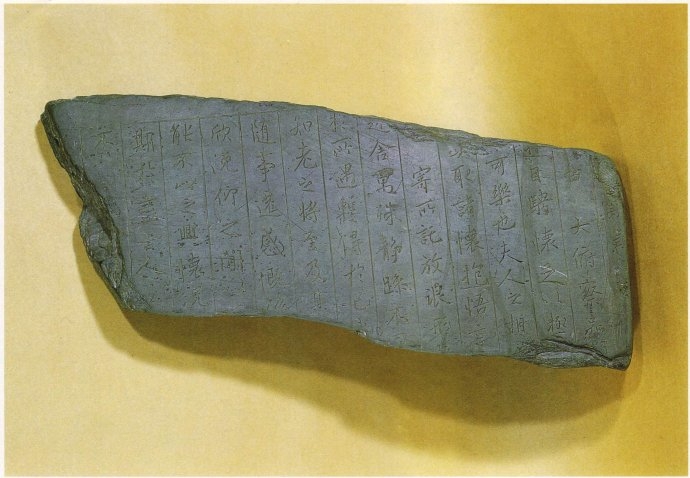 大俯察品
目騁懷足以極
可樂也夫人之相
取諸懷抱悟言
寄所託放浪形
舍萬殊静躁不
所遇蹔得於己
知老之將至及其
隨事遷感慨係
欣俛仰之間
能不以之興懷況
期於盡古人